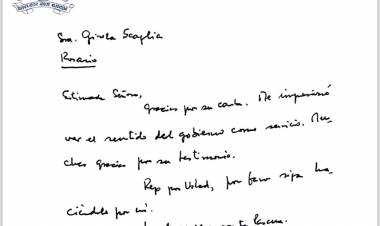 Sra. Gisela Scaglia
Rosario
Estimada Señora,
Gracias por su carta. Me impresionó
ver el sentido del gobierno como servicio. Mu-
chas gracias por su testimonio.
Rezo por Usted, por favor siga ha-
ciéndolo por mí.
santa Pascua.